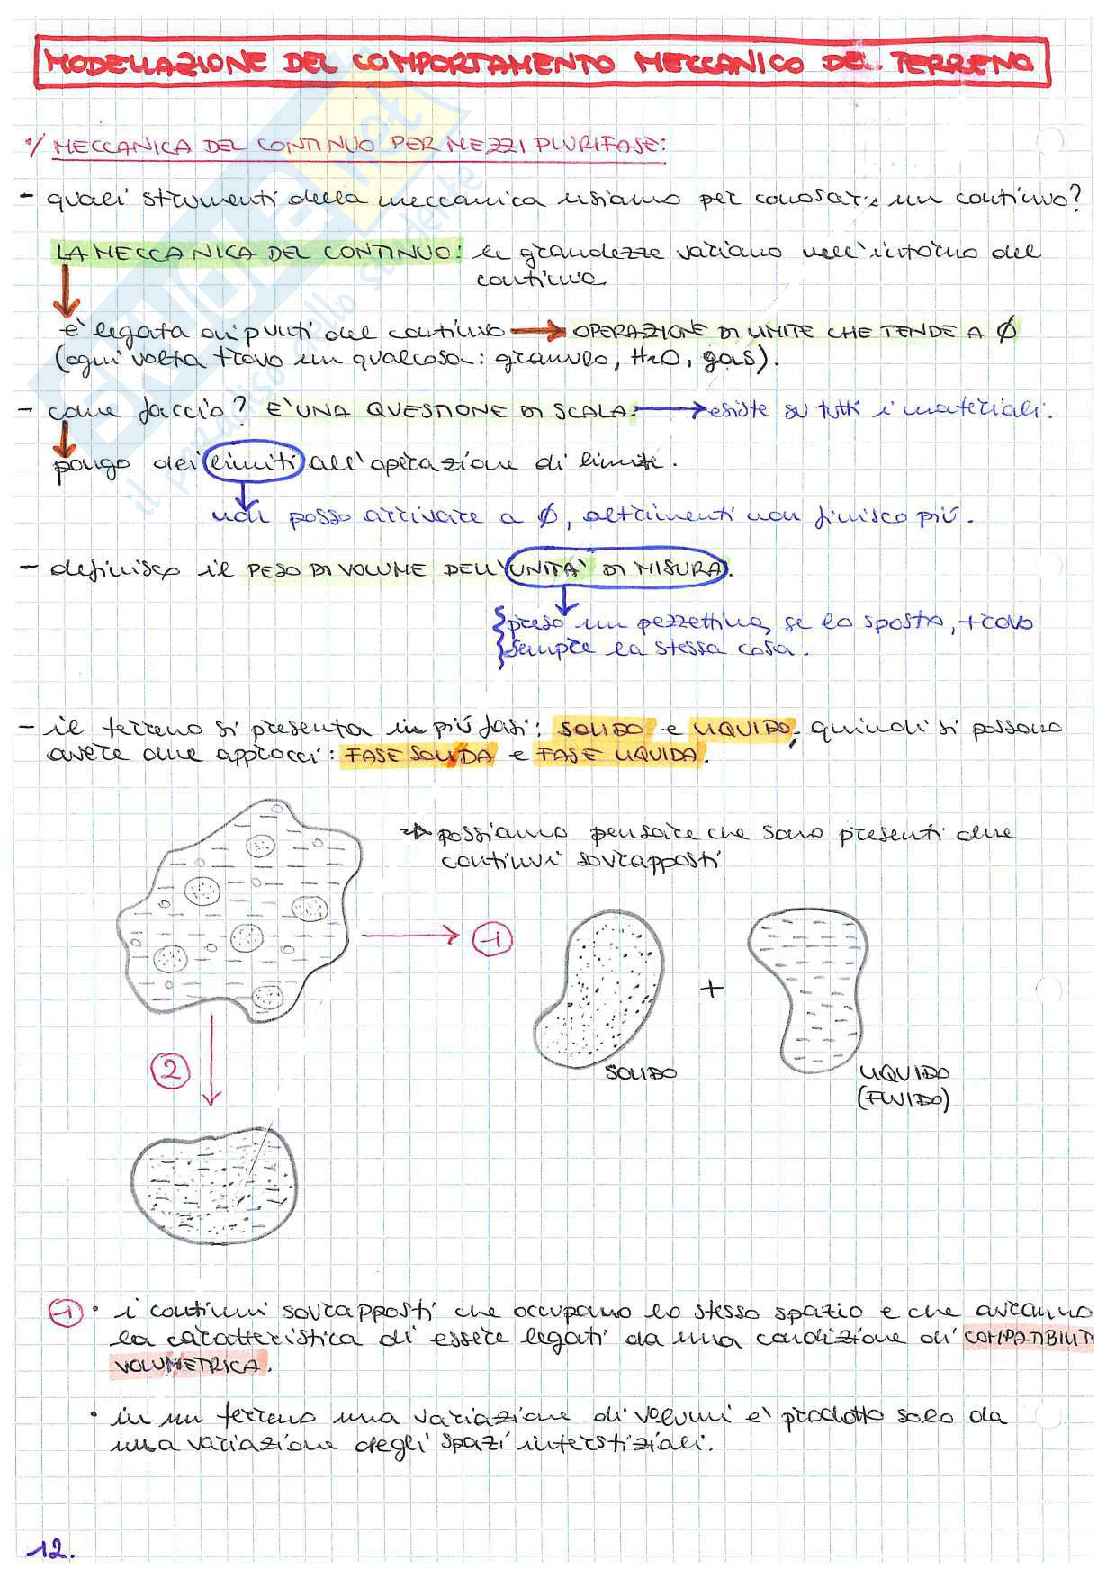 MODELLAZIONE DEL COMPORTAMENTO MECCANICO DEL TERRENO
•/ MECCANICA DEL CONTINUO PER MEZZI PLURIFASE:
- quali strumenti della meccanica usiamo per conoscere un continuo?
LA MECCANICA DEL CONTINUO: le grandezze variano nell'intorno del
continuo.
è legata ai punti del continuo → OPERAZIONE DI LIMITE CHE TENDE A ∅
(ogni volta trovo un qualcosa: granulo, H2O, gas).
- come faccio? E' UNA QUESTIONE DI SCALA: → esiste su tutti i materiali.
pongo dei limiti all'operazione di limite.
non posso arrivare a ∅, altrimenti non finisco più.
- definisco il PESO DI VOLUME DELL'UNITA' DI MISURA.
preso un pezzettino, se lo sposto, trovo
sempre la stessa cosa.
- il terreno si presenta in più fasi: SOLIDO e LIQUIDO, quindi si possono
avere due approcci: FASE SOLIDA e FASE LIQUIDA.
→ possiamo pensare che sono presenti due
continui sovrapposti
1
+
2
SOLIDO
LIQUIDO
(FLUIDO)
1 • i continui sovrapposti che occupano lo stesso spazio e che avranno
la caratteristica di essere legati da una condizione di COMPATIBILIT
VOLUMETRICA.
• in un terreno una variazione di volumi è prodotto solo da
una variazione degli spazi interstiziali.
12.